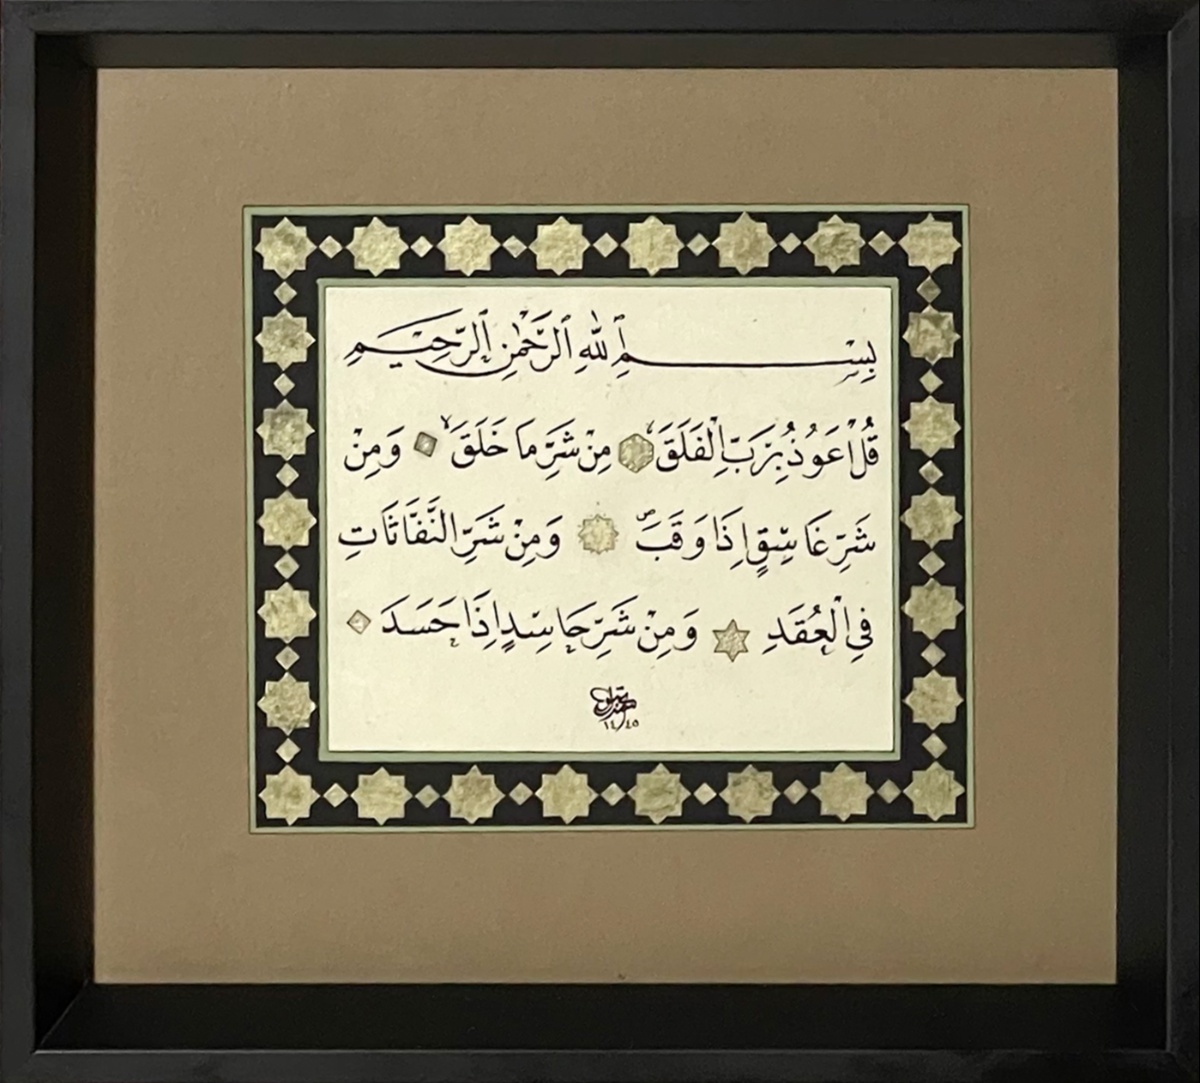 بِسْمِ ٱللّٰهِ ٱلرَّحْمٰنِ ٱلرَّحِيمِ
قُلْ اَعُوذُ بِرَبِّ الْفَلَقِۙ مِنْ شَرِّ مَا خَلَقَۙ وَمِنْ
شَرِّ غَاسِقٍ اِذَا وَقَبَۙ وَمِنْ شَرِّ النَّفَّاثَاتِ
فِي الْعُقَدِ وَمِنْ شَرِّ حَاسِدٍ اِذَا حَسَدَ
١٤٤٥